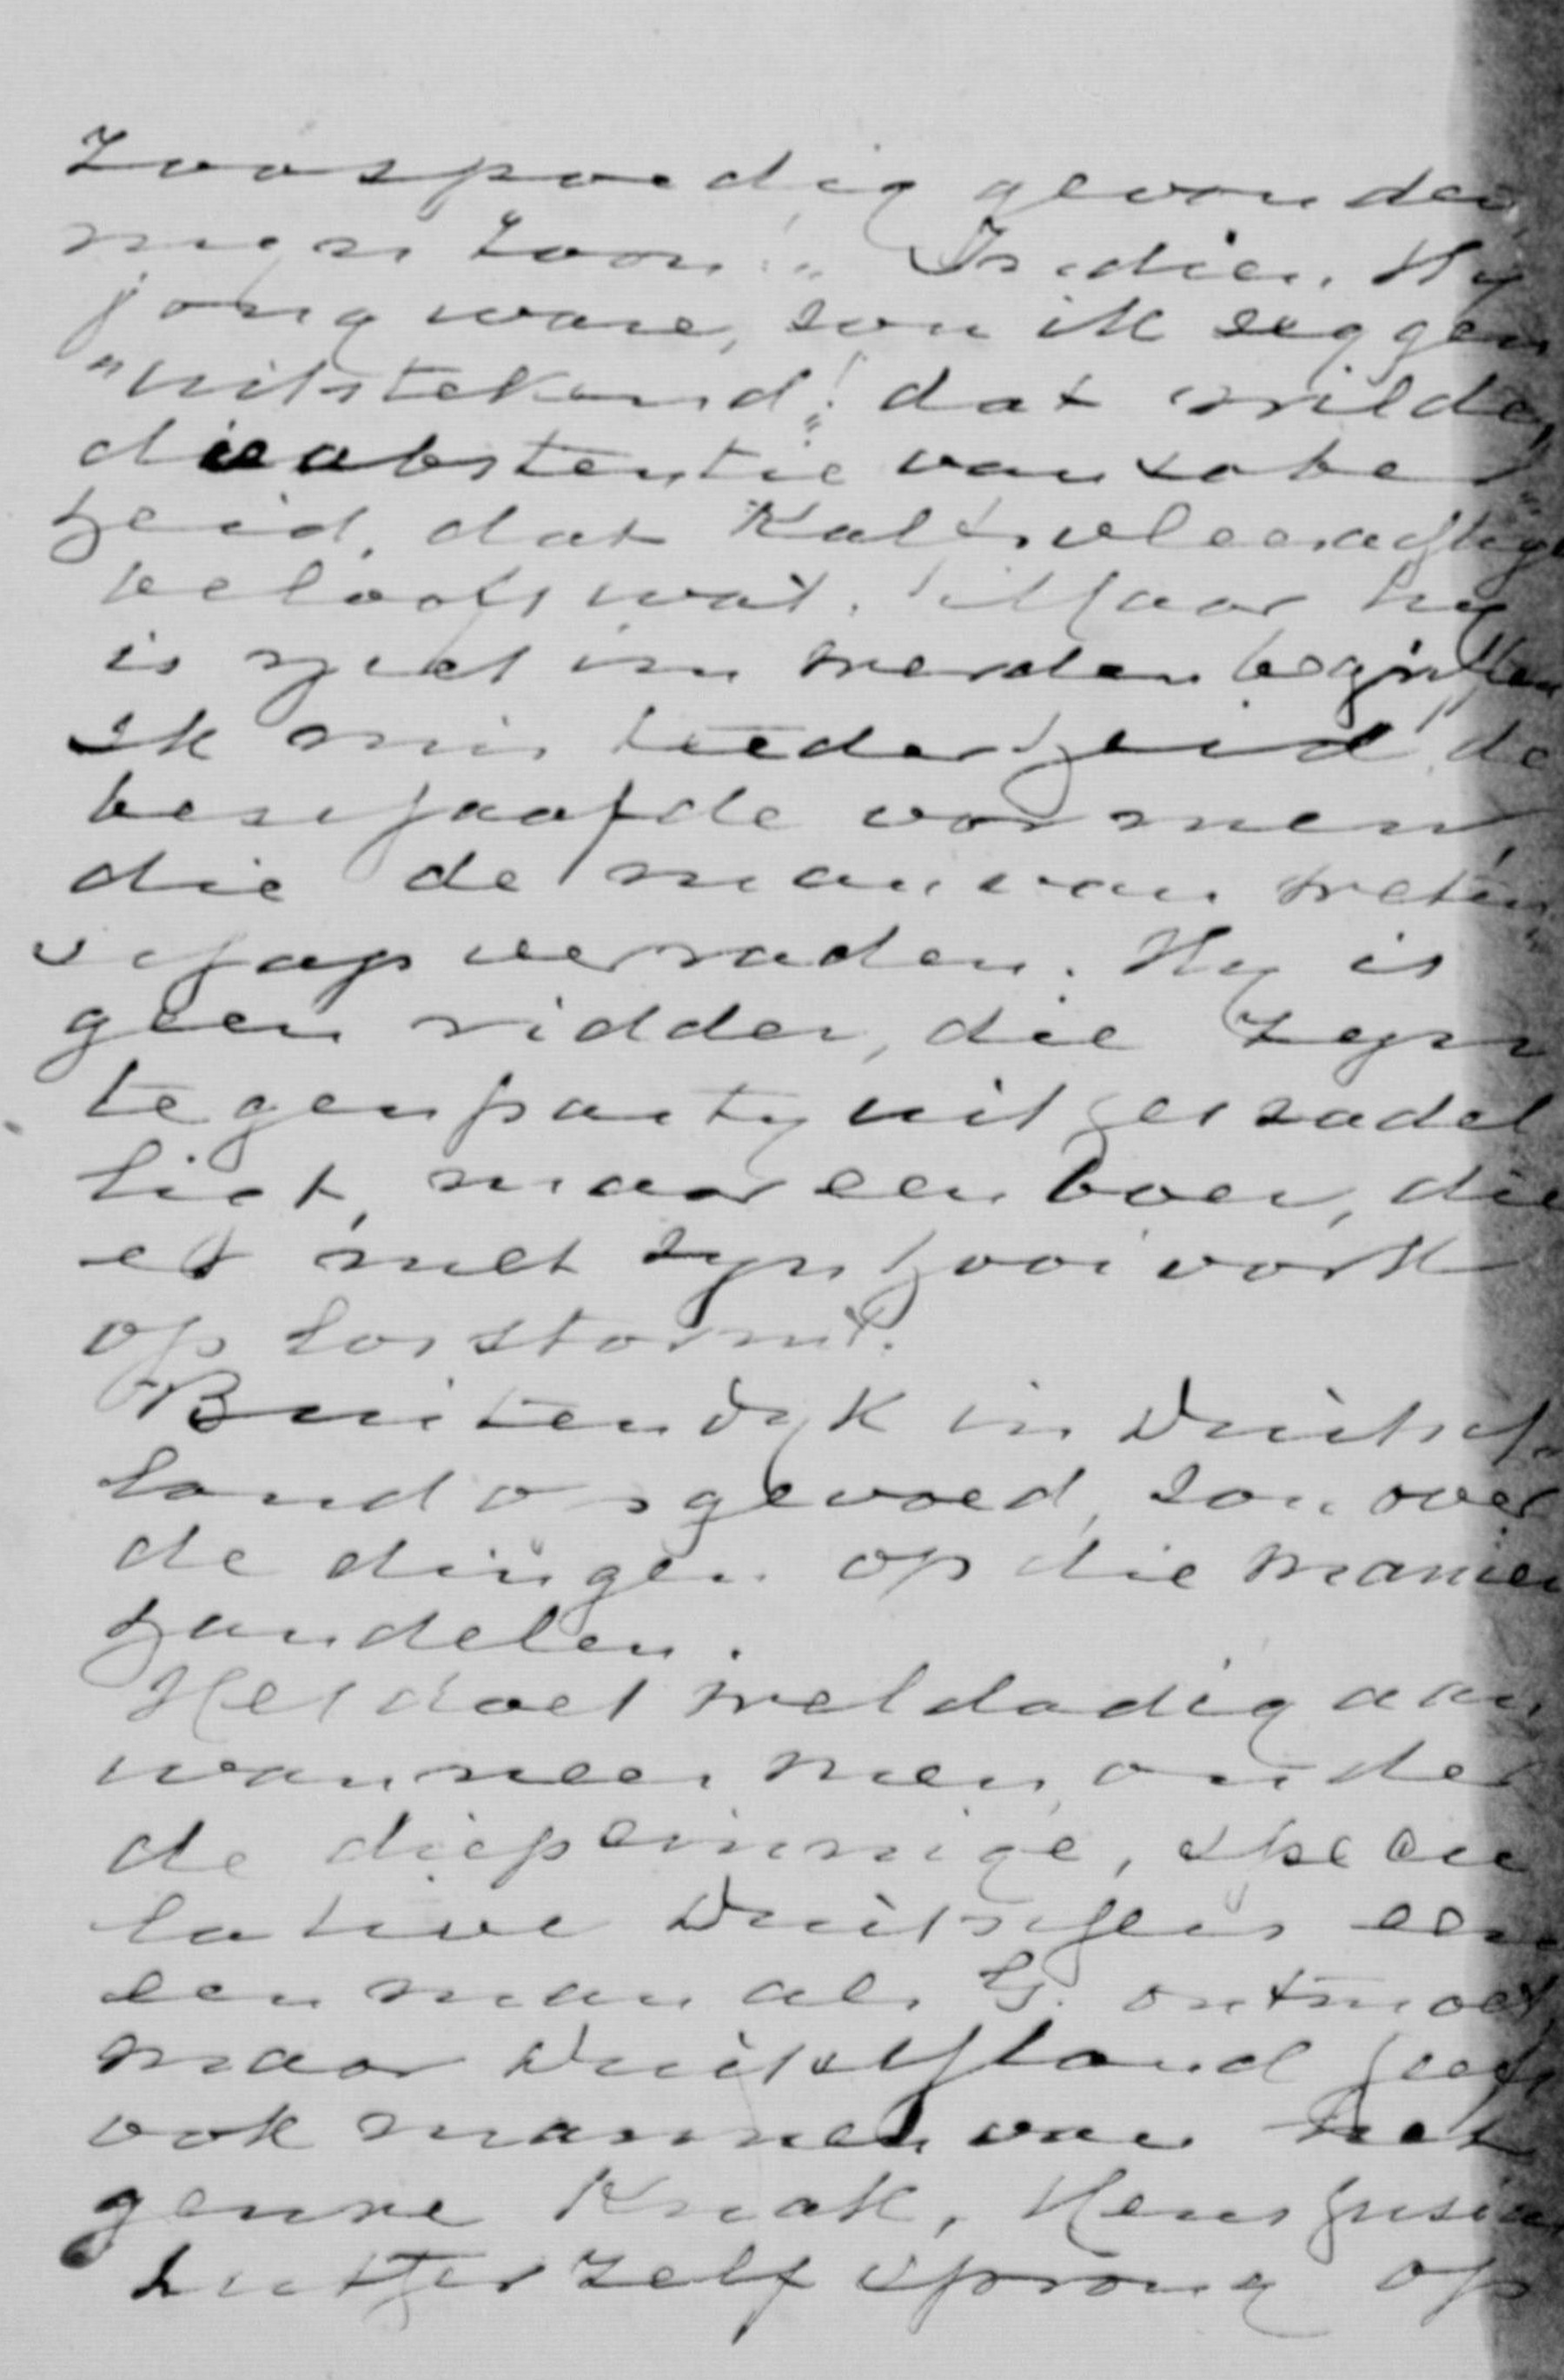 zoo spoedig gevonden,
myn zoon." Indien Hy
jong ware, zou ik zeggen
"uitstekend!" dat wilde,
die abstentie van sober
heid, dat Kaltvleesachtige
belooft wat. Maar hy
is in werden begrepen
Ik mis teederheid de
beschaafde vormen,
die de man van weten
schap verraden. Hy is
geen ridder, die zyn
tegenparty uit het zadel
ligt, maar een boer, die
er met zyn hooivork
op losstormt.
Buitendyk in Duitsch
land opgevoed, zou over
de dingen op die manier
handelen.
Het doet weldadig aan,
wanneer men onder
de diepzinnige, specu
lative Duitschers een
een man als G. ontmoet
maar Duitschland heeft
ook mannen van het
genre Knak,
Luther zelf sprong op